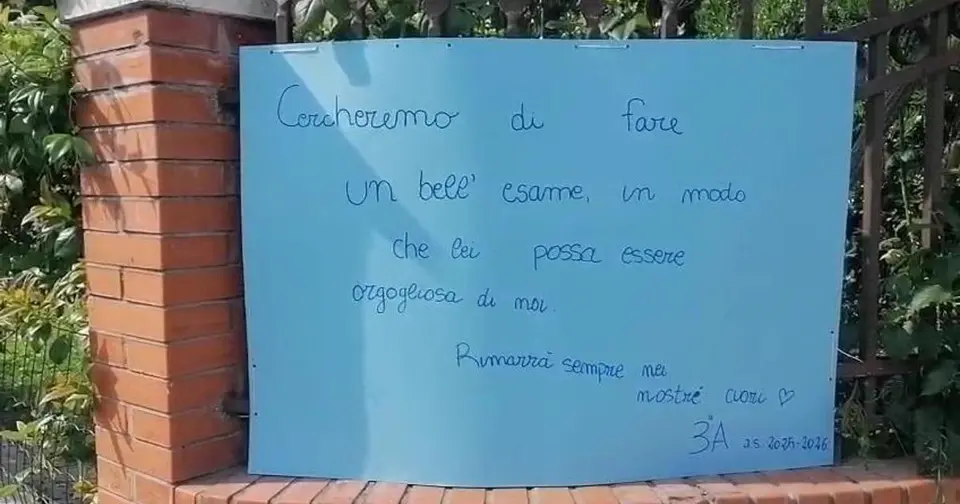 Cercheremo di fare
un bell' esame, in modo
che lei possa essere
orgogliosa di noi.
Rimarrà sempre nei
nostri cuori ♡
3°A a.s. 2025-2026